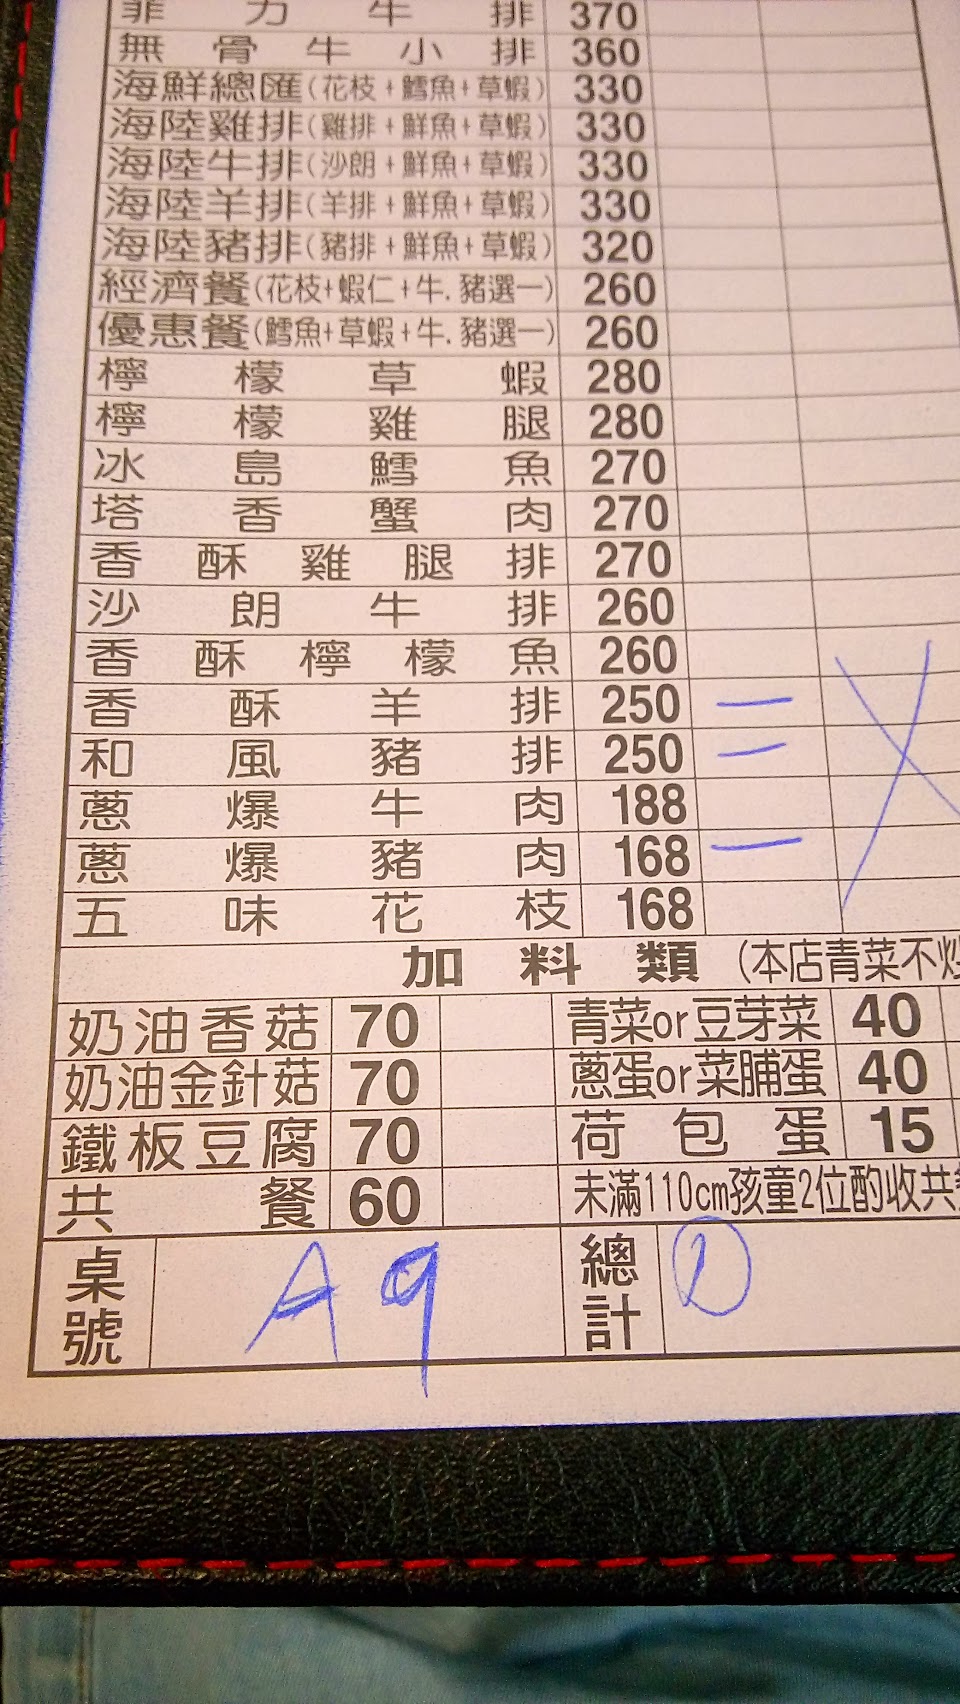 菲力牛排 370
無骨牛小排 360
海鮮總匯(花枝+鱈魚+草蝦) 330
海陸雞排(雞排+鮮魚+草蝦) 330
海陸牛排(沙朗+鮮魚+草蝦) 330
海陸羊排(羊排+鮮魚+草蝦) 330
海陸豬排(豬排+鮮魚+草蝦) 320
經濟餐(花枝+蝦仁+牛.豬選一) 260
優惠餐(鱈魚+草蝦+牛.豬選一) 260
檸檬草蝦 280
檸檬雞腿 280
冰島鱈魚 270
塔香蟹肉 270
香酥雞腿排 270
沙朗牛排 260
香酥檸檬魚 260
香酥羊排 250 一
和風豬排 250 一
蔥爆牛肉 188
蔥爆豬肉 168 一
五味花枝 168
加料類(本店青菜不炒
奶油香菇 70 青菜or豆芽菜 40
奶油金針菇 70 蔥蛋or菜脯蛋 40
鐵板豆腐 70 荷包蛋 15
共餐 60 未滿110cm孩童2位酌收共
桌號 A9 總計 ①